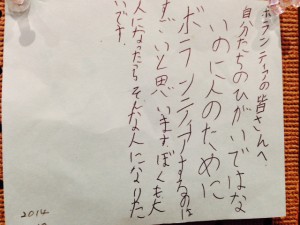 ボランティアの皆さんへ
自分たちのひがいではな
いのに人のために
ボランティアするのは
すごいと思いますぼくも大
人になったらそんな人になりた
いです。
2014